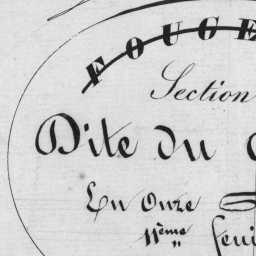 FOUGE
Section
Dite du
En Onze
11ème